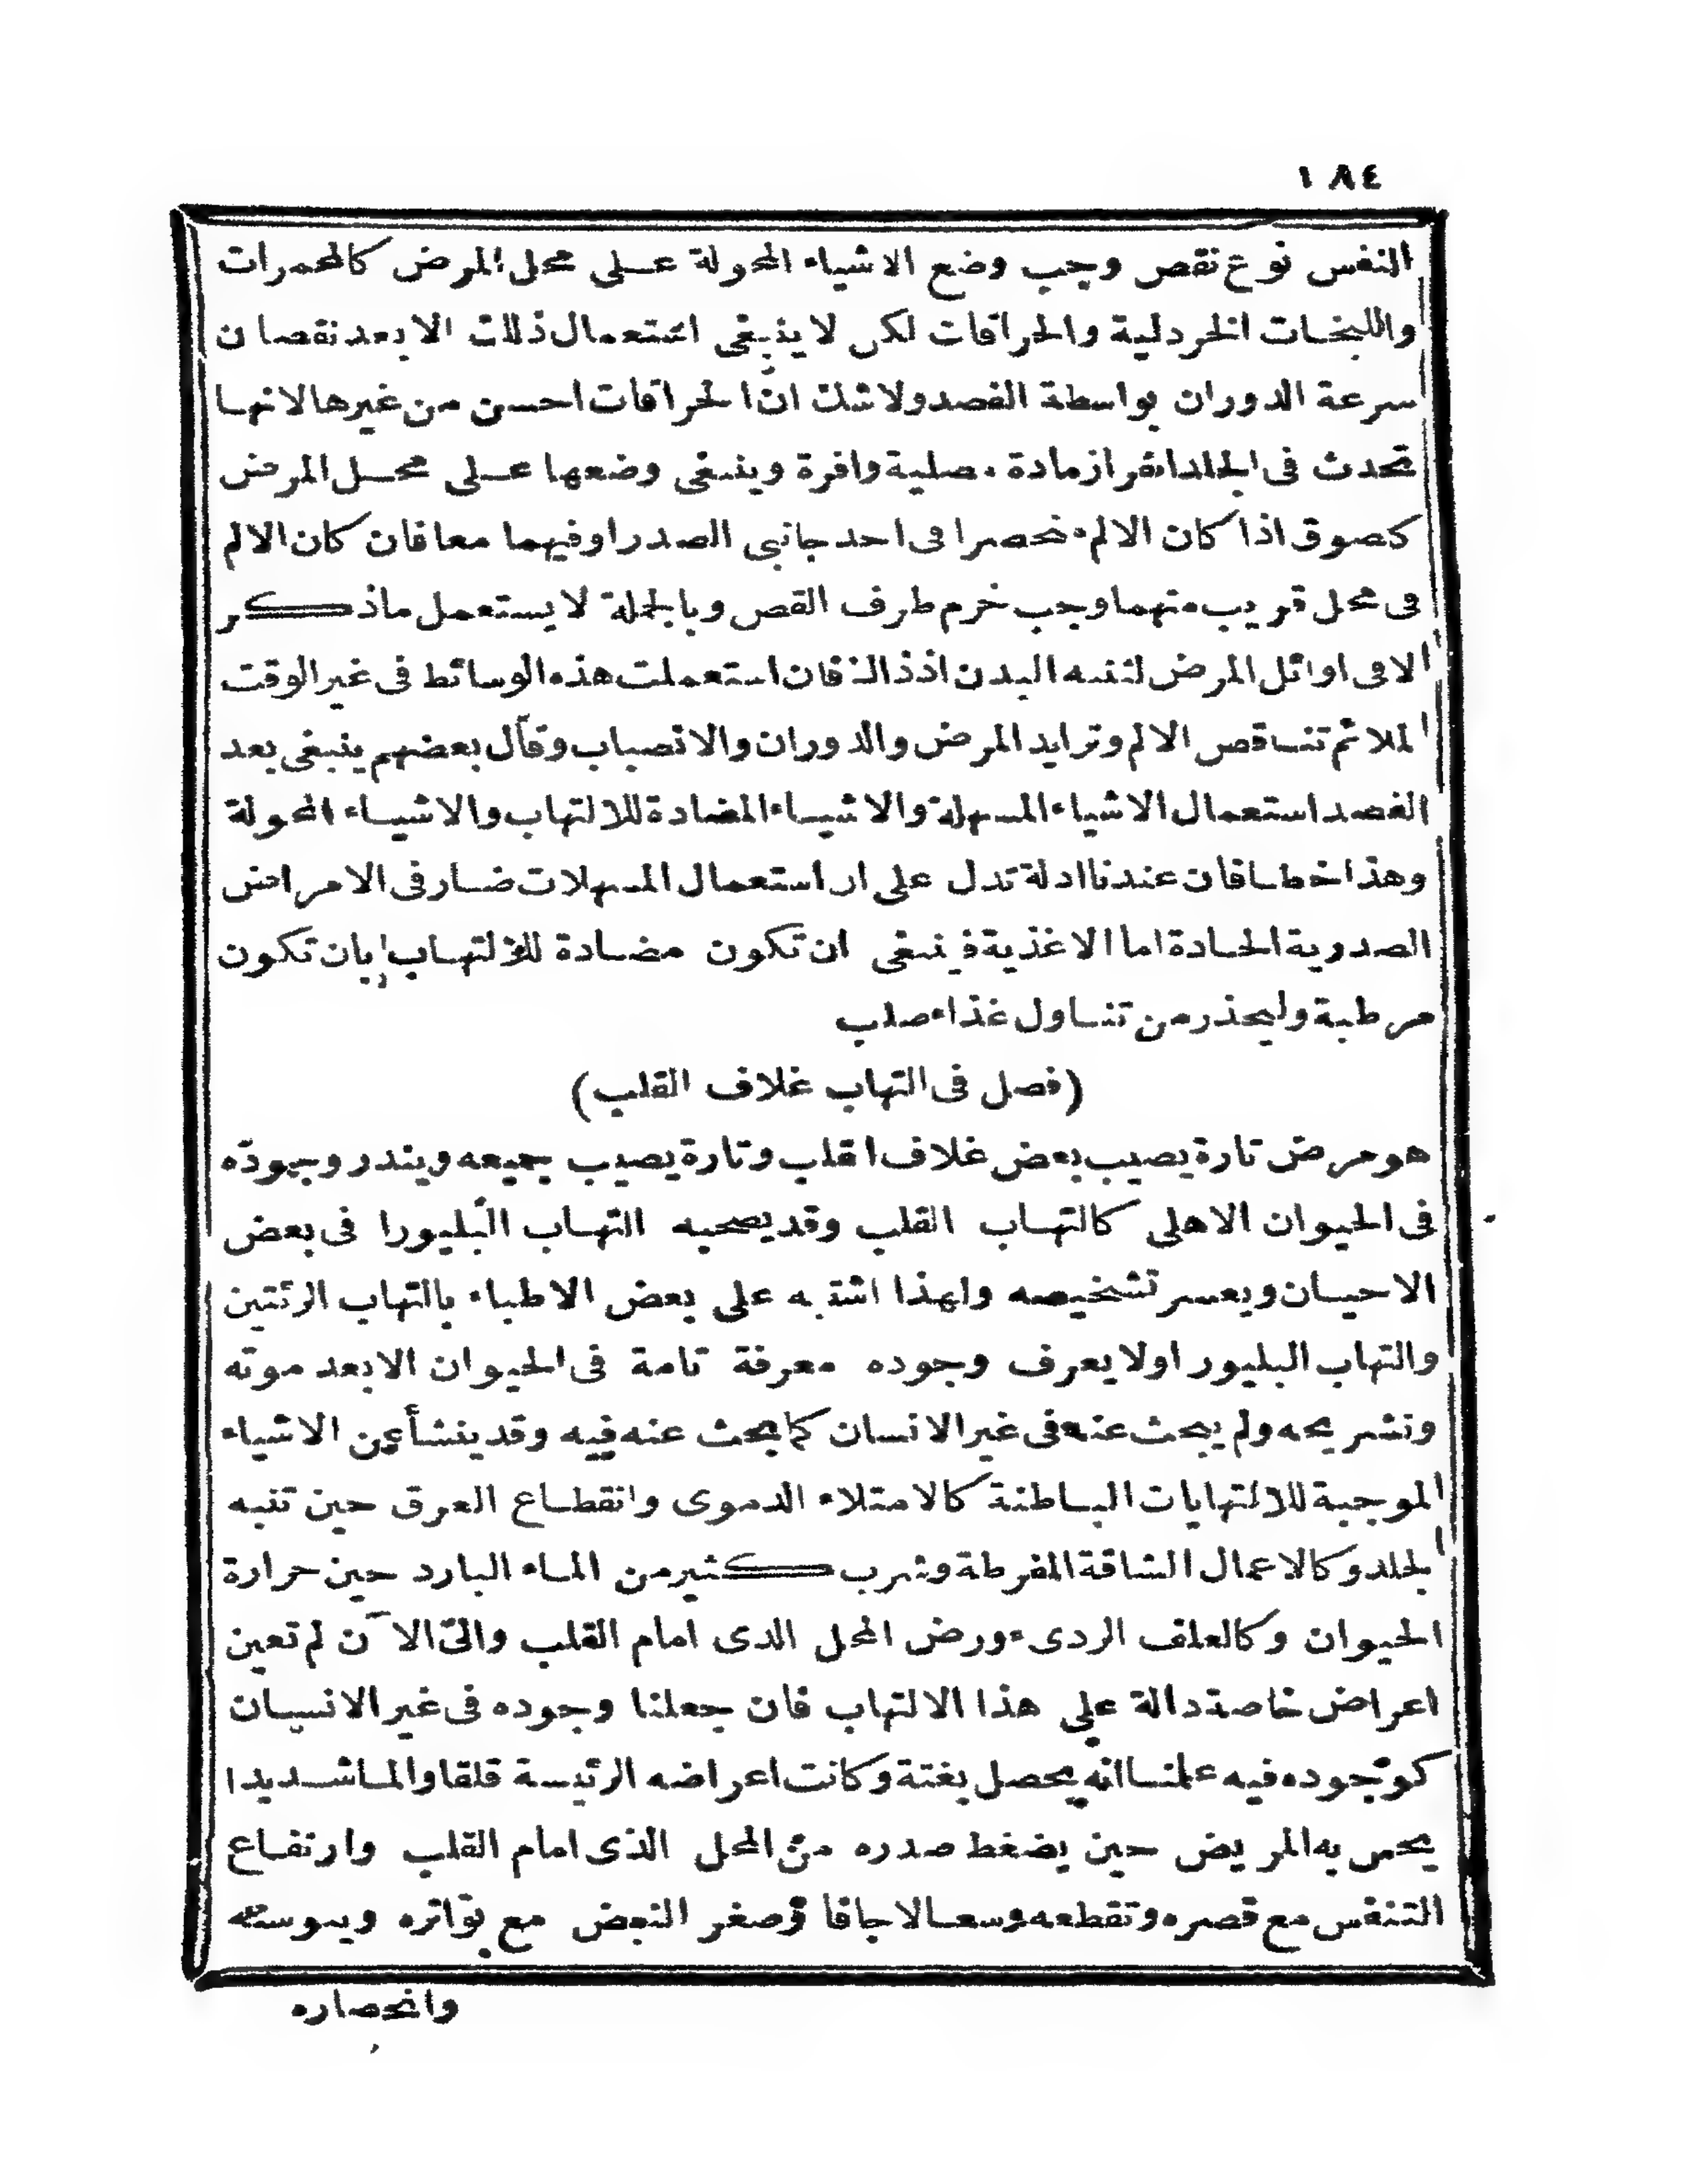 ١٨٤
النفس نوع نقص وجب وضع الاشياء المحولة على محل المرض كالمحمرات
واللبخات الخردلية والحراقات لكن لا ينبغى استعمال ذلك الا بعد نقصان
سرعة الدوران بواسطة الفصد ولا شك ان الحراقات احسن من غيرها لانها
تحدث فى الجلد افراز مادة مصلية وافرة وينبغى وضعها على محل المرض
كصوق اذا كان الالم منحصرا فى احد جانبى الصدر او فيهما معا فان كان الالم
فى محل قريب منهما وجب خرم طرف القص وبالجملة لا يستعمل ما ذكر
الا فى اوائل المرض لتنبه البدن اذ ذاك فان استعملت هذه الوسائط فى غير الوقت
الملائم تناقص الالم وتزايد المرض والدوران والانصباب وقال بعضهم ينبغى بعد
الفصد استعمال الاشياء المسهلة والاشياء المضادة للالتهاب والاشياء المحولة
وهذا خطا فان عندنا ادلة تدل على ان استعمال المسهلات ضار فى الامراض
الصدرية الحادة اما الاغذية فينبغى ان تكون مضادة للالتهاب بان تكون
مرطبة وليحذر من تناول غذاء صلب
(فصل فى التهاب غلاف القلب)
هو مرض تارة يصيب بعض غلاف القلب وتارة يصيب جميعه ويندر وجوده
فى الحيوان الاهلى كالتهاب القلب وقد يصحبه التهاب البليورا فى بعض
الاحيان ويعسر تشخيصه ولهذا اشتبه على بعض الاطباء بالتهاب الرئتين
والتهاب البليورا ولا يعرف وجوده معرفة تامة فى الحيوان الا بعد موته
وتشريحه ولم يبحث عنه فى غير الانسان كما بحث عنه فيه وقد ينشأ عن الاشياء
الموجبة للالتهابات الباطنة كالامتلاء الدموى وانقطاع العرق حين تنبه
الجلد وكالاعمال الشاقة المفرطة وشرب كثير من الماء البارد حين حرارة
الحيوان وكالعلف الردىء ورض المحل الذى امام القلب والى الآن لم تعين
اعراض خاصة دالة على هذا الالتهاب فان جعلنا وجوده فى غير الانسان
كوجوده فيه علمنا انه يحصل بغتة وكانت اعراضه الرئيسة قلقا والما شديدا
يحس به المريض حين يضغط صدره من المحل الذى امام القلب وارتفاع
التنفس مع قصره وتقطعه وسعالا جافا وصغر النبض مع تواتره ويبوسته
وانحصاره